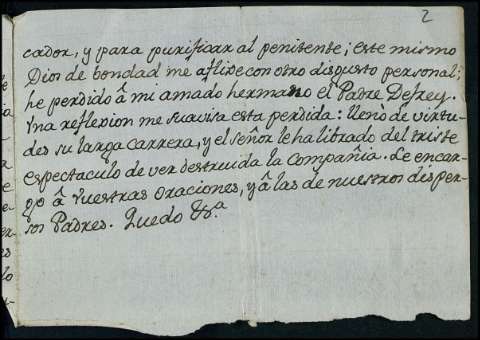 2
cador, y para purificar al penitente; este mismo
Dios de bondad me aflixe con otro disgusto personal;
he perdido â mi amado hermano el Padre Desrey.
Una reflexion me suaviza esta perdida: lleno de virtu-
des su larga Carrera, y el señor le ha librado del triste
espectaculo de ver destruida la Compañia. Le encar-
go â vuestras oraciones, y â las de nuestros disper-
sos Padres. Quedo &.ª